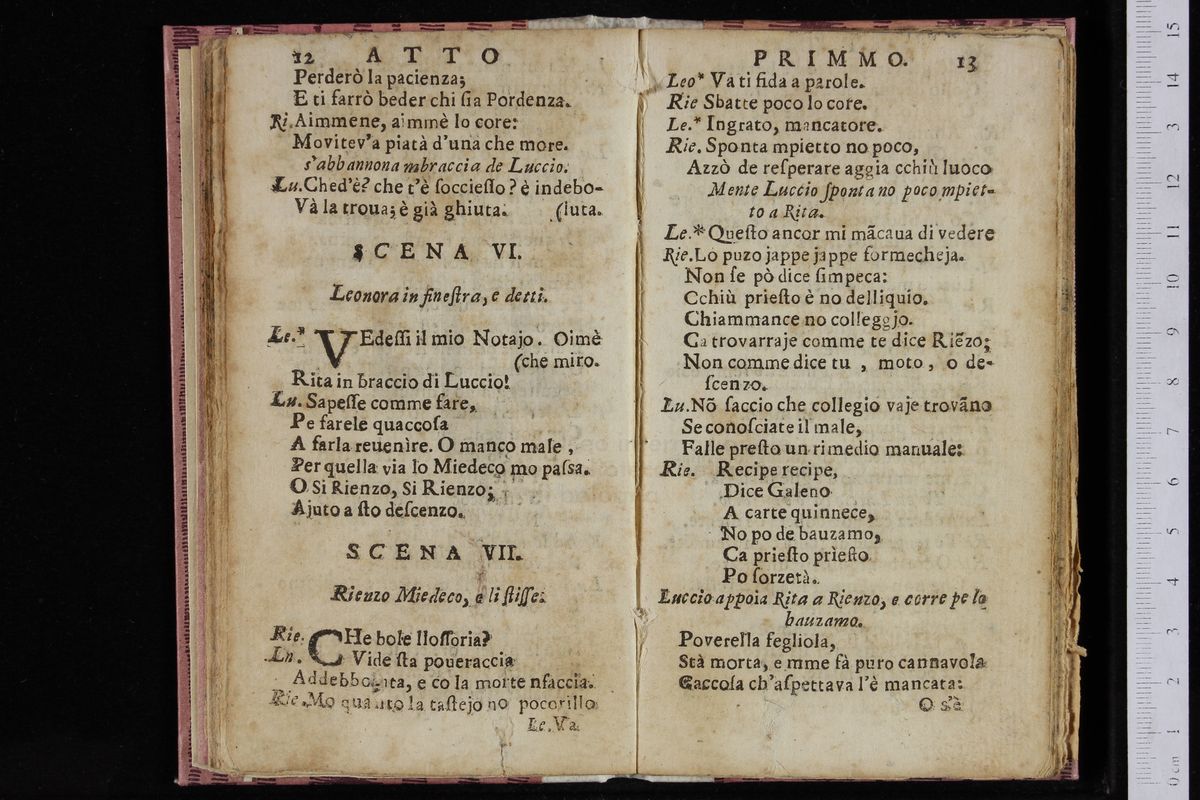 12 ATTO
Perderò la pacienza;
E ti farrò beder chi ſia Pordenza.
Ri. Aimmene, aimmè lo core:
Movitev'a piatà d'una che more.
s'abbannona mbraccia de Luccio.
Lu. Ched'è? che t'è ſoccieſſo? è indebo-
Và la troua; è già ghiuta. (luta.
SCENA VI.
Leonora in fineſtra, e detti.
Le.* VEdeſſi il mio Notajo. Oimè
(che miro.
Rita in braccio di Luccio!
Lu. Sapeſſe comme fare,
Pe farele quaccoſa
A farla reuenire. O manco male,
Per quella via lo Miedeco mo paſsa.
O Si Rienzo, Si Rienzo;
Ajuto a ſto deſcenzo.
SCENA VII.
Rienzo Miedeco, e li ſtiſſe.
Rie. CHe bole lloſſoria?
Lu. Vide ſta poueraccia
Addebboluta, e co la morte nfaccia.
Rie. Mo quanto la taſtejo no pocorillo
Le. Va
PRIMMO. 13
Leo* Va ti fida a parole.
Rie Sbatte poco lo core.
Le.* Ingrato, mancatore.
Rie. Sponta mpietto no poco,
Azzò de reſperare aggia cchiù luoco
Mente Luccio ſponta no poco mpiet-
to a Rita.
Le.* Queſto ancor mi mãcaua di vedere
Rie. Lo puzo jappe jappe formecheja.
Non ſe pò dice ſimpeca:
Cchiù prieſto è no delliquio.
Chiammance no colleggjo.
Ca trovarraje comme te dice Riẽzo;
Non comme dice tu, moto, o de-
ſcenzo.
Lu. Nõ ſaccio che collegio vaje trovãno
Se conoſciate il male,
Falle preſto un rimedio manuale:
Rie. Recipe recipe,
Dice Galeno
A carte quinnece,
No po de bauzamo,
Ca prieſto prieſto
Po ſorzetà.
Luccio appoia Rita a Rienzo, e corre pe lo
bauzamo.
Poverella fegliola,
Stà morta, e mme fà puro cannavola
Caccoſa ch'aſpettava l'è mancata:
O s'è